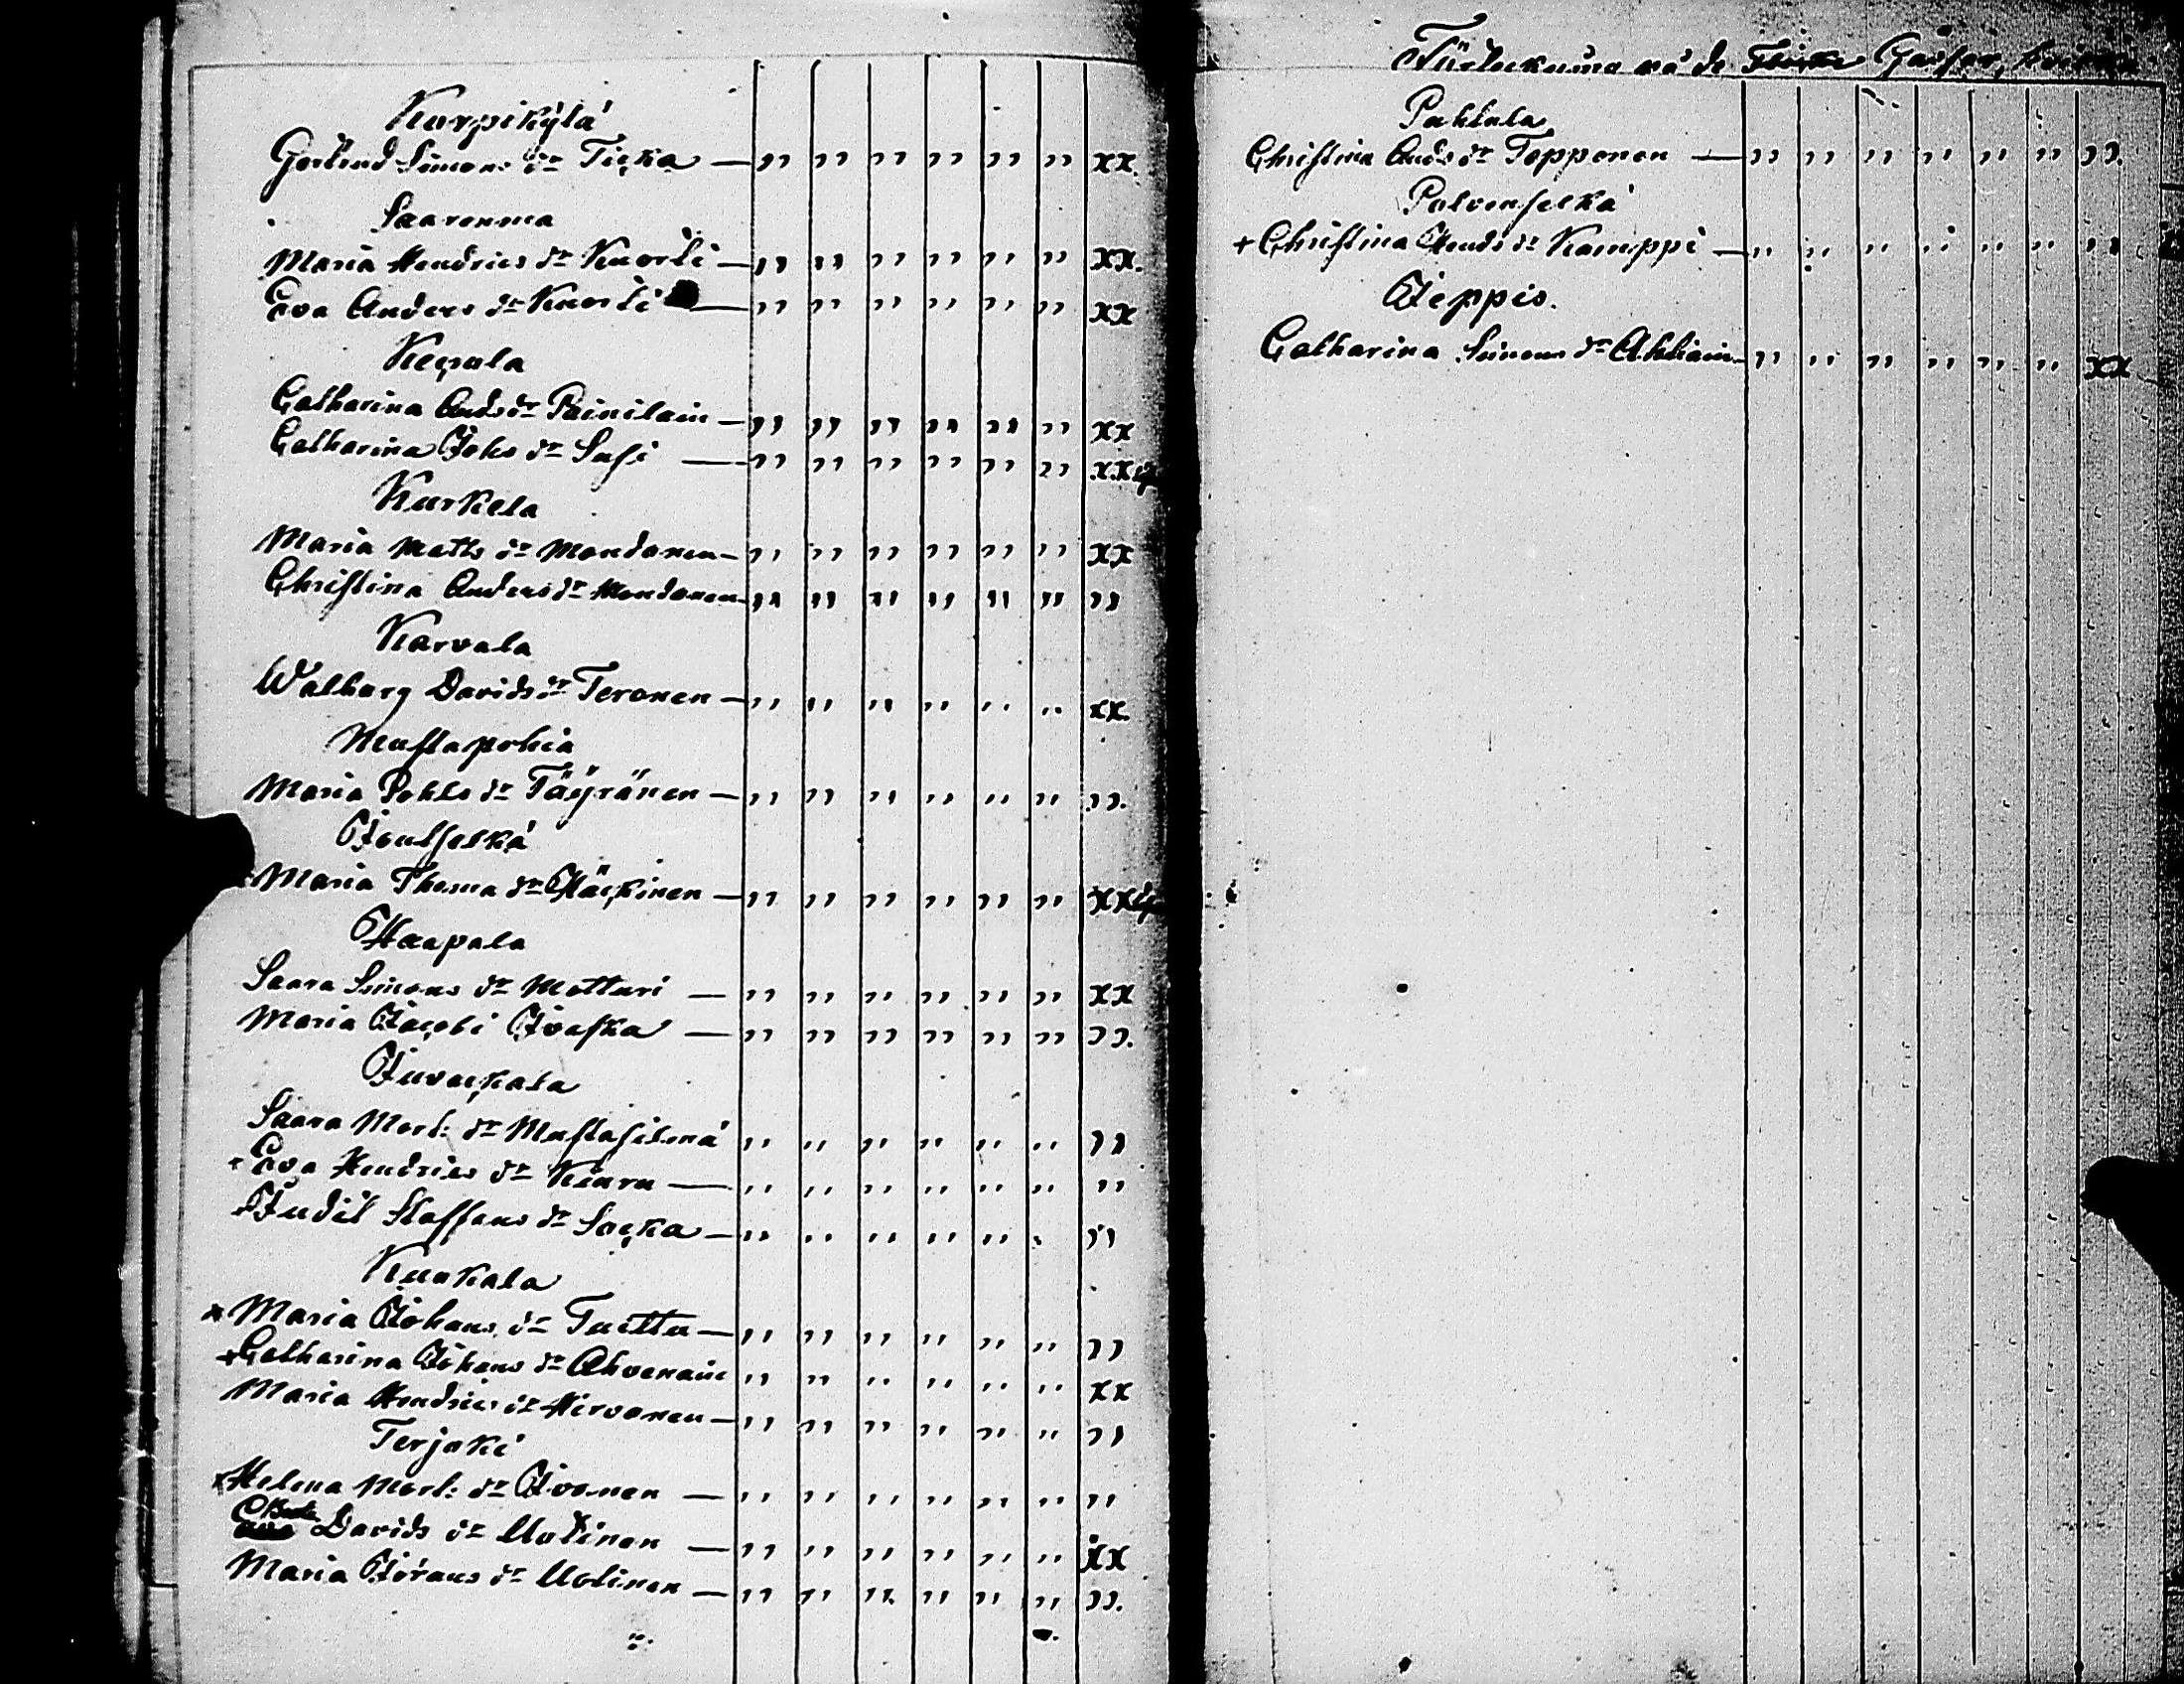 Karpikÿlä
Gertrud Simons dr Ticka — " " " " " " xx.
Saarenma
Maria Hendrics dr Kuorti — " " " " " " xx.
Eva Anders dr Kuorti — " " " " " " xx
Kegala
Catharina Ands dr Painilain — " " " " " " xx
Catharina Johs dr Susi — " " " " " " xx
Kurkela
Maria Matts dr Mondonen — " " " " " " xx
Christina Anders dr Mondonen " " " " " " "
Karvala
Walborg Davids dr Teronen — " " " " " " xx.
Mustapohia
Maria Pohls dr Täyränen — " " " " " " ".
Joutselkä
Maria Thoma dr Häckinen — " " " " " " xx
Haapala
Saara Simons dr Motturi — " " " " " " xx
Maria Jacobi Ivaska — " " " " " " ".
Juvackala
Saara Mort: dr Mustasilmä " " " " " " "
Eva Hendrics dr Kiuru — " " " " " " "
Judit Staffans dr Sacka — " " " " " " "
Kuokala
x Maria Johans dr Tuittu — " " " " " " "
+ Catharina Johans dr Ahvenain " " " " " " xx
Maria Hendrics dr Hirvonen — " " " " " " "
Terjoki
x Helena Mort: dr Ivonen — " " " " " " "
Davids dr Uotinen — " " " " " " xx
Maria Görans dr Uotinen — " " " " " " ".
på de Gårfar,
Puhtula
Christina Ands dr Topponen — " " " " " " ".
Polvenselkä
+ Christina Hends dr Kamppi — " " " " " " "
Jeppis.
Catharina Simons dr Ahtiain — " " " " " " xx